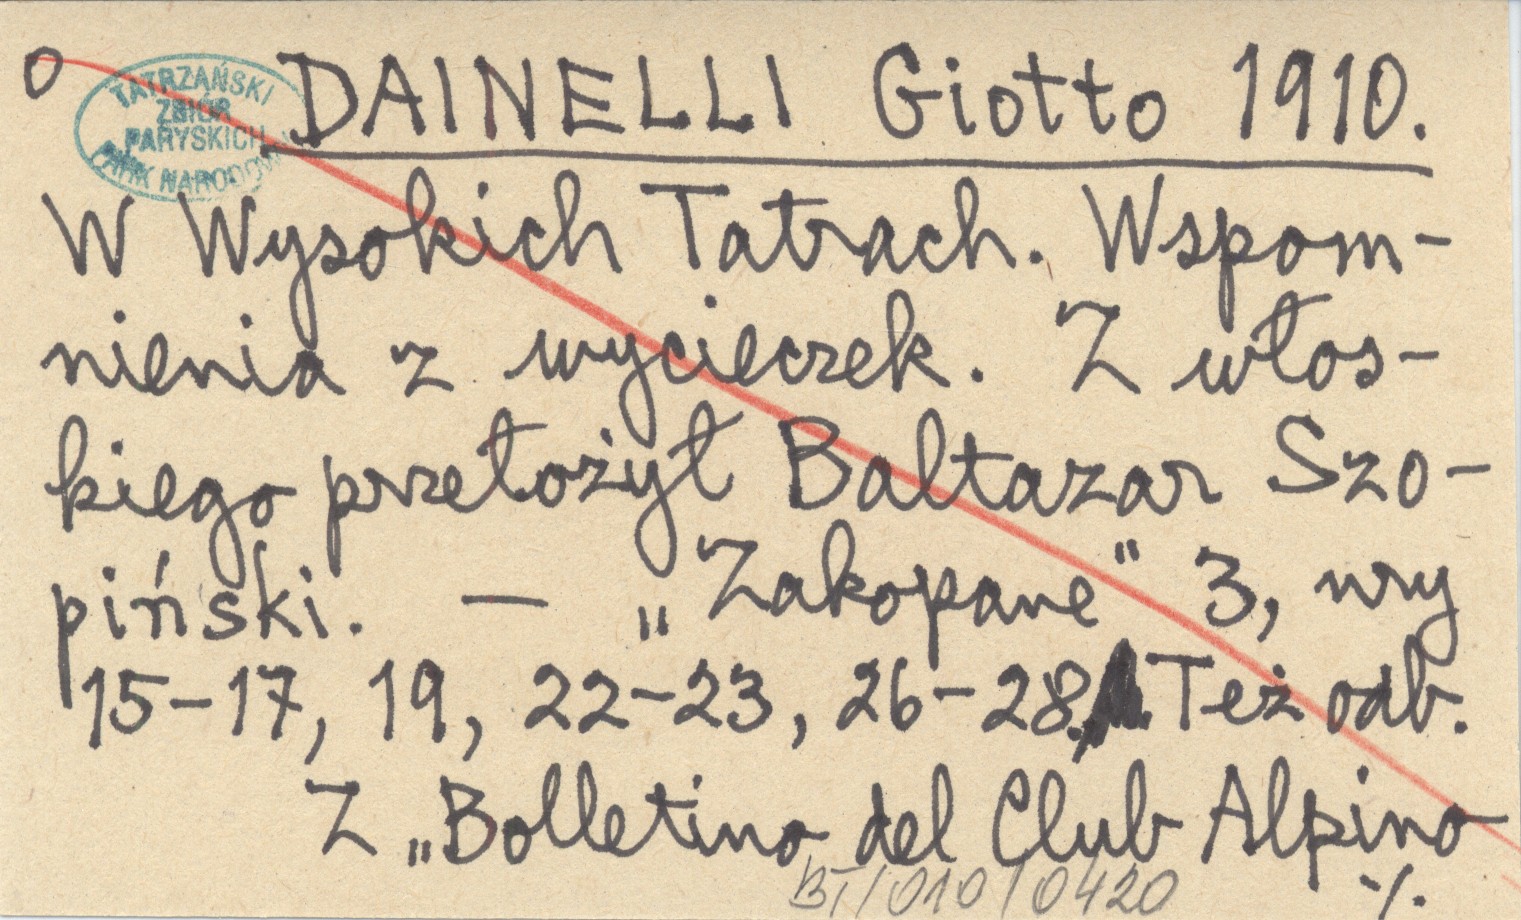 O
TATRZAŃSKI
ZBIÓR
PARYSKICH
PARK NARODOWY
DAINELLI Giotto 1910.
W Wysokich Tatrach. Wspom-
nienia z wycieczek. Z włos-
kiego przełożył Baltazar Szo-
piński. — „Zakopane" 3, nry
15-17, 19, 22-23, 26-28. Też odb.
Z „Bolletino del Club Alpino
BT/010/0420
·/.